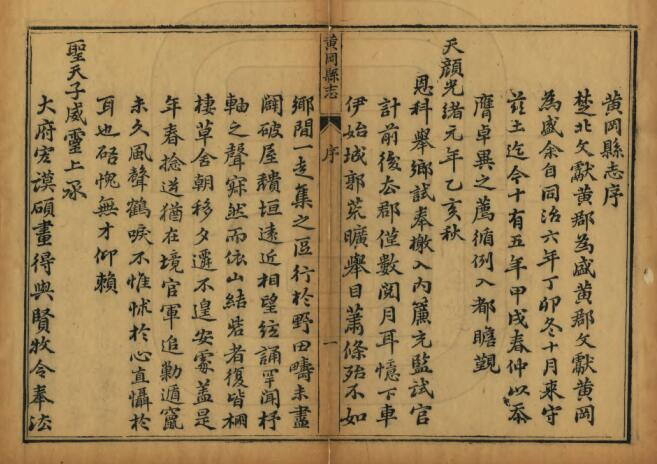 黄岡縣志序
楚北文獻黄郡為盛黄郡文獻黄岡
為盛余自同治六年丁卯冬十月来守
茲土迄今十有五年甲戌春仲以忝
膺卓異之薦循例入都瞻覲
天顔光緒元年乙亥秋
恩科舉鄉試奉檄入内簾充監試官
計前後去郡僅數閱月耳憶下車
伊始城郭荒曠舉目蕭條殆不如
黄岡縣志
序
一
鄉間一走集之區行於野田疇未盡
闢破屋穨垣遠近相望絃誦罕聞杼
軸之聲寂然而依山結砦者復皆栖
棲草舍朝移夕遷不遑安處蓋是
年春捻逆猶在境官軍追勦遁竄
未久風聲鶴唳不惟怵於心直懾於
耳也碚愧無才仰賴
聖天子威靈上承
大府宏謨碩畫得與賢牧令奉法